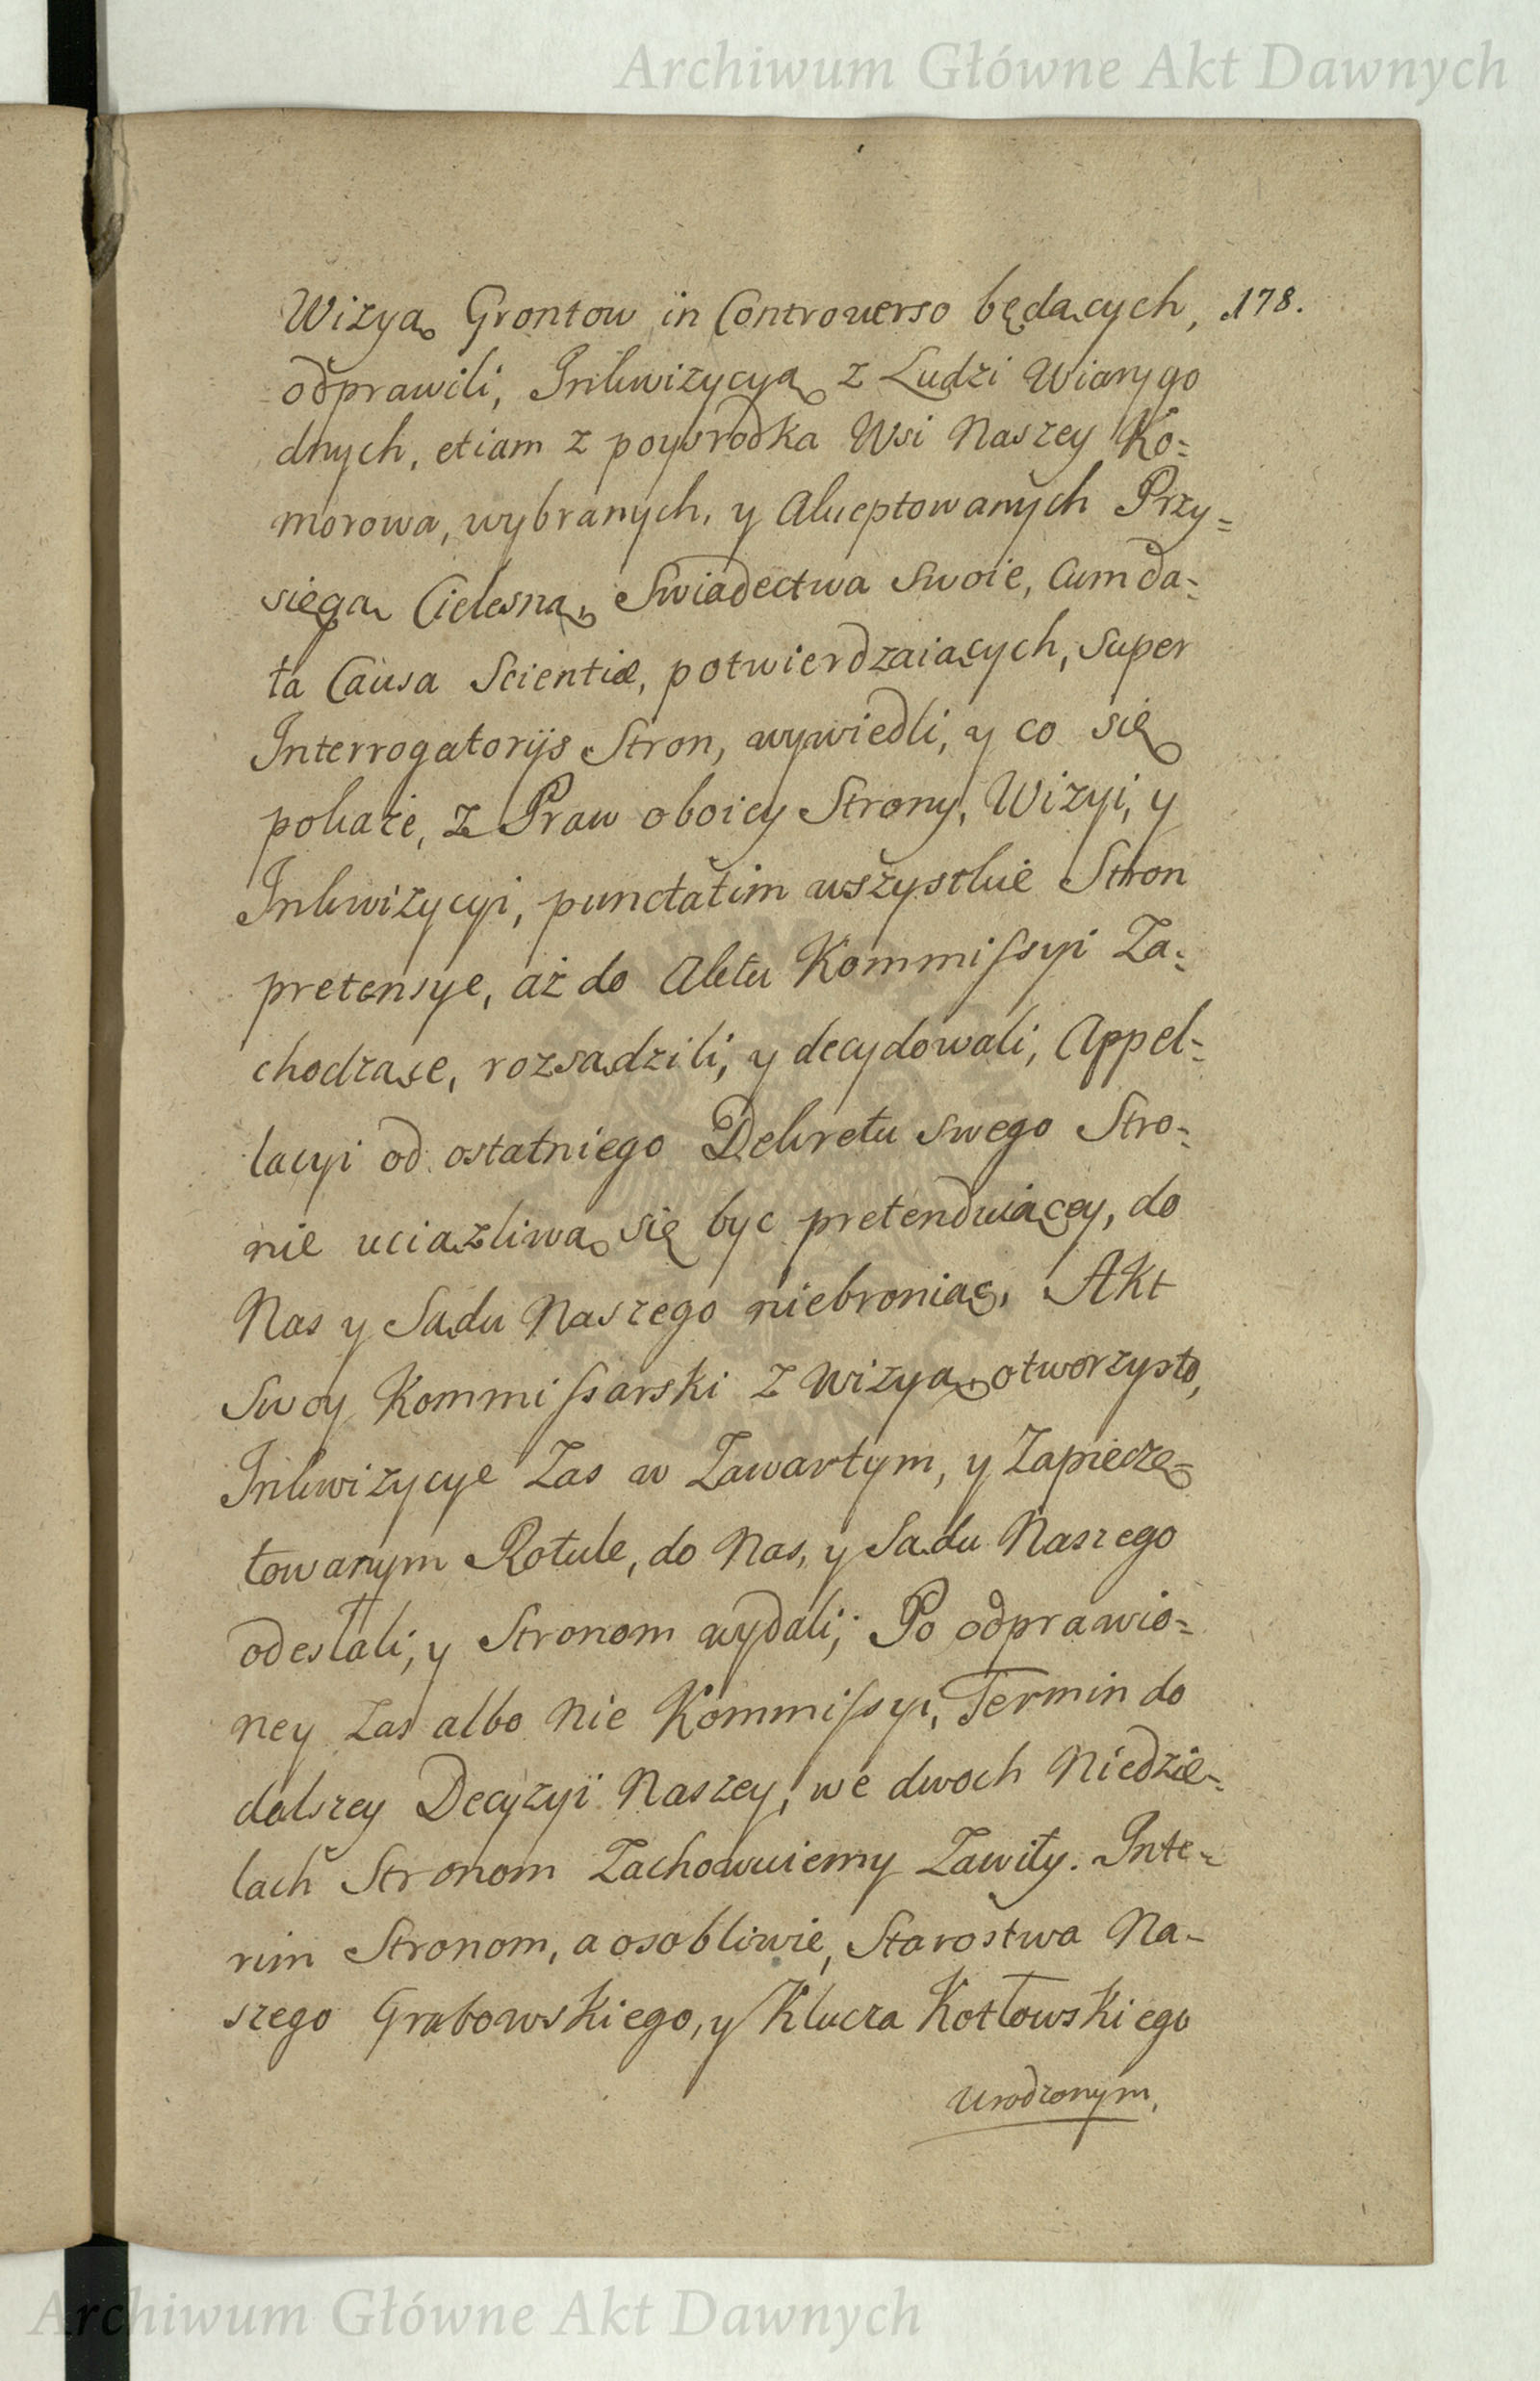 Archiwum Główne Akt Dawnych
Wizyą Grontow in Controverso będących, 178.
odprawili, Inkwizycyą z Ludzi Wiarygo
dnych, etiam z poysrodka Wsi Naszey Ko=
morowa, wybranych, y Akceptowanych Przy=
sięgą Cielesną, Swiadectwa Swoie, Cum da=
ta Causa Scientiæ, potwierdzaiących, Super
Interrogatorijs Stron, wywiedli, y co się
pokaże, z Praw oboiey Strony, Wizyi, y
Inkwizycyi, punctatim wszystkie Stron
pretensye, aż do Aktu Kommissyi Za=
chodzące, rozsądzili, y decydowali, Appel=
lacyi od ostatniego Dekretu swego Stro=
nie uciążliwą się byc pretenduiącey, do
Nas y Sądu Naszego niebroniąc, Akt
Swoy Kommissarski z Wizyą otworzysto,
Inkwizycye Zas w Zawartym, y Zapieczę=
towanym Rotule, do Nas, y Sądu Naszego
odesłali, y Stronom wydali; Po odprawio=
ney Zas albo Nie Kommissyi, Termin do
dalszey Decyzyi Naszey, we dwoch Niedzie=
lach Stronom Zachowuiemy Zawity. Inte=
rim Stronom, a osobliwie, Starostwa Na=
szego Grabowskiego, y Klucza Kotłowskiego
Urodzonym,
Archiwum Główne Akt Dawnych